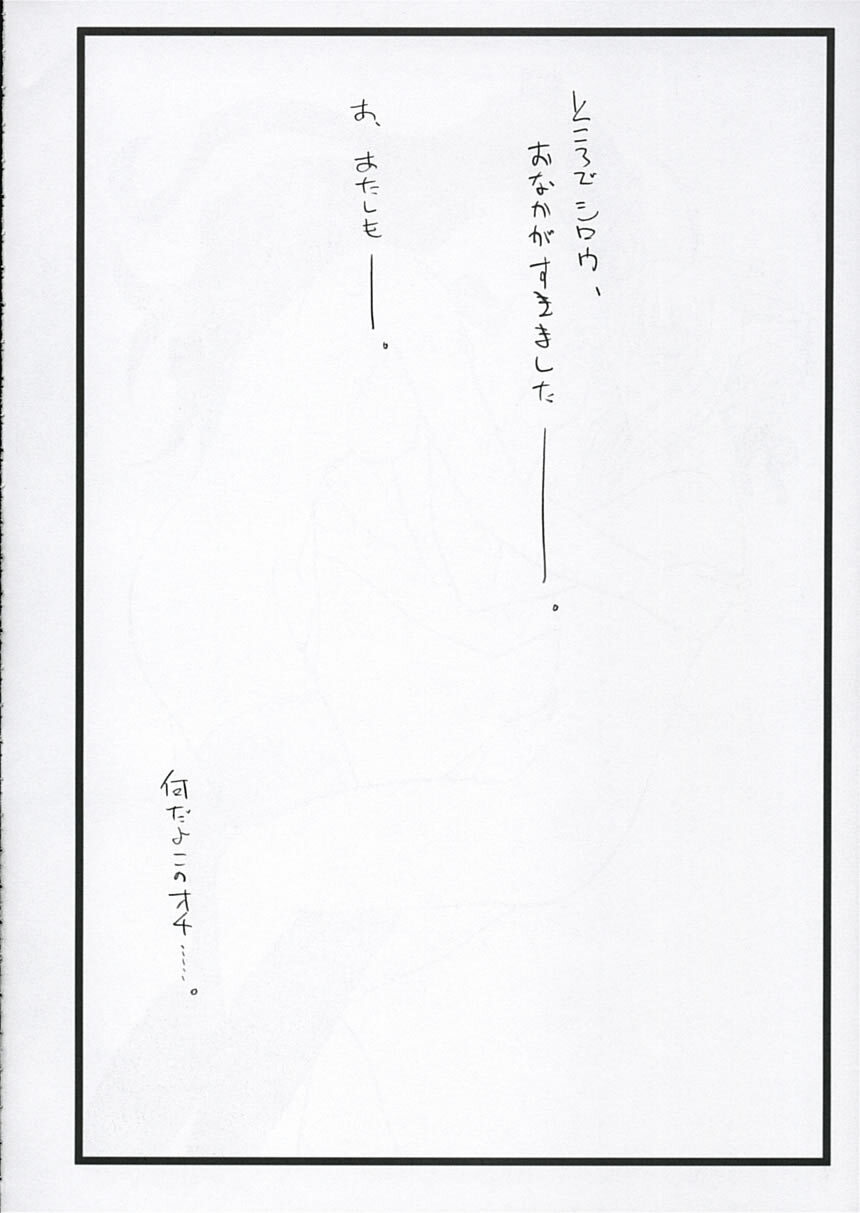 ところでシロウ、
おなかがすきました――。
お、おたしも――。
何だよこのオチ……。